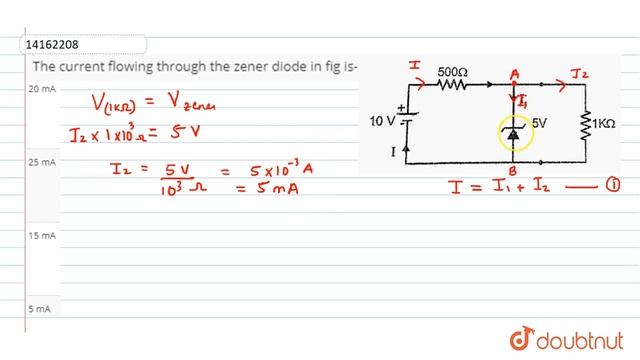 14162208
The current flowing through the zener diode in fig is-
20 mA
25 mA
15 mA
5 mA
V(1KΩ) = Vzener
I2 × 1×10³Ω = 5V
I2 = 5V / 10³ Ω = 5×10⁻³ A
= 5mA
I
500Ω
A
I2
I1
10 V
+
5V
1KΩ
I
B
I = I1 + I2 —— ①
doubtnut